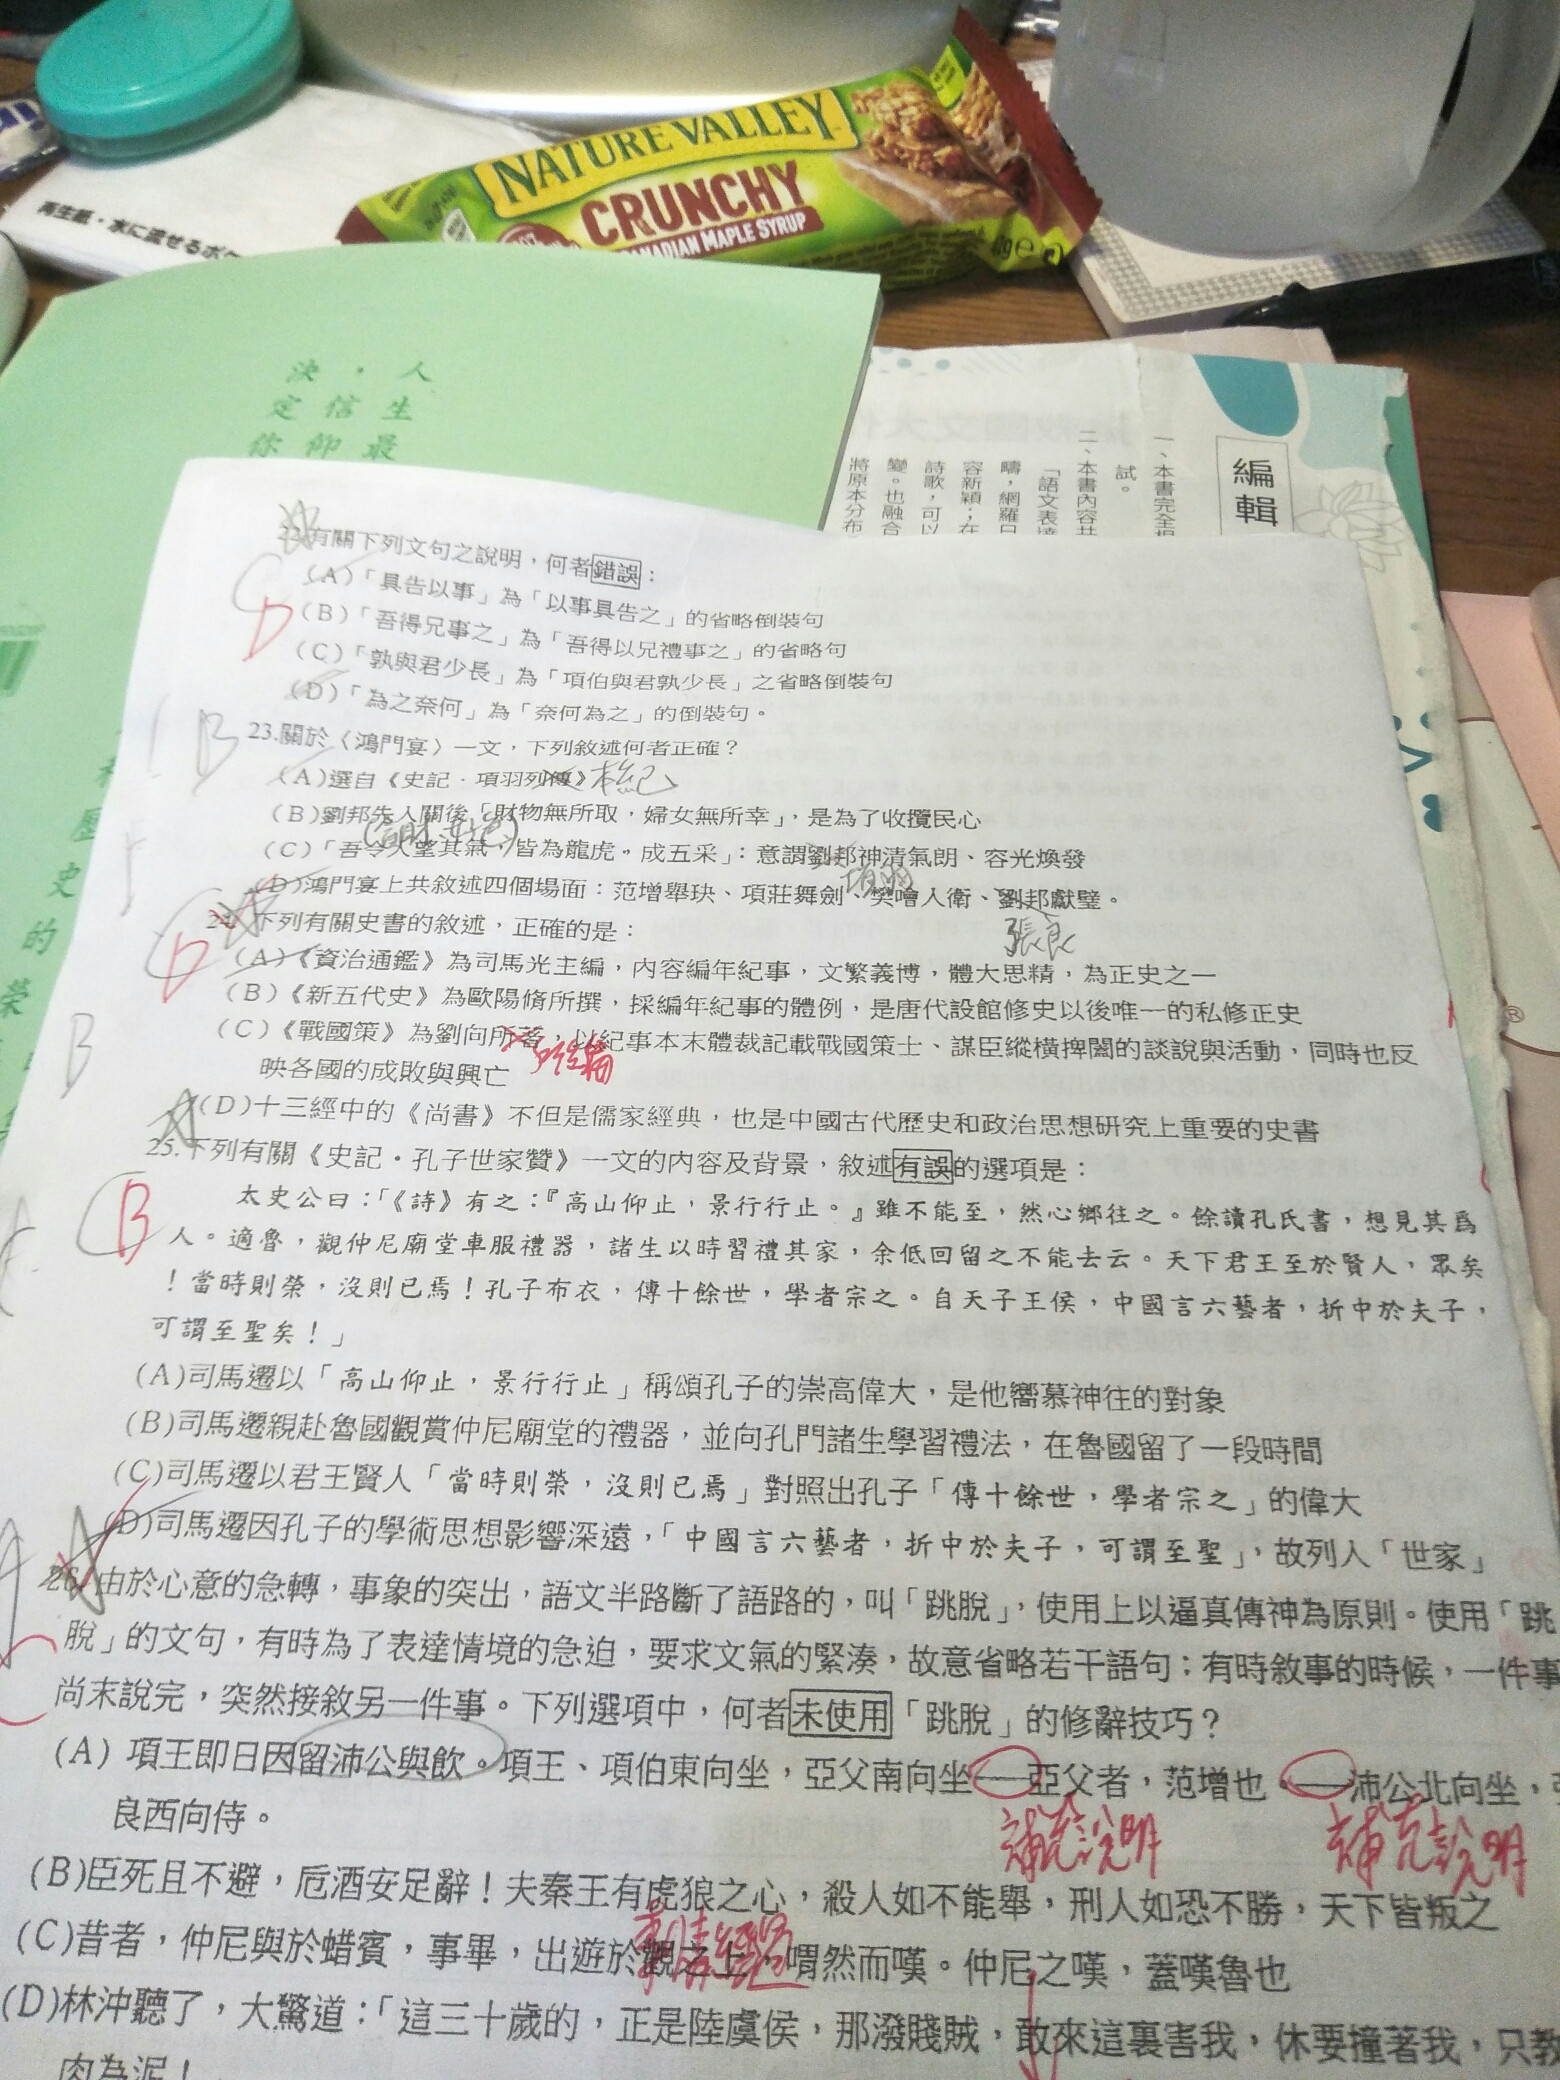 NATURE VALLEY
CRUNCHY
CANADIAN MAPLE SYRUP
再生紙・水に流せるポケ
決・人
定信生
你仰最
歷
史
的
榮
編輯
一、本書完全根
試。
二、本書內容共
「語文表達
疇，網羅日
容新穎；在
詩歌，可以
變。也融合
將原本分布
22.有關下列文句之說明，何者錯誤：
D
(A)「具告以事」為「以事具告之」的省略倒裝句
(B)「吾得兄事之」為「吾得以兄禮事之」的省略句
(C)「孰與君少長」為「項伯與君孰少長」之省略倒裝句
(D)「為之奈何」為「奈何為之」的倒裝句。
B
23.關於〈鴻門宴〉一文，下列敘述何者正確？
(A)選自《史記．項羽列傳》本紀
(B)劉邦先入關後「財物無所取，婦女無所幸」，是為了收攬民心
(C)「吾令人望其氣，皆為龍虎。成五采」：意謂劉邦神清氣朗、容光煥發
項羽
(D)鴻門宴上共敘述四個場面：范增舉玦、項莊舞劍、樊噲入衛、劉邦獻璧。
張良
D
24.下列有關史書的敘述，正確的是：
(A)《資治通鑑》為司馬光主編，內容編年紀事，文繁義博，體大思精，為正史之一
(B)《新五代史》為歐陽脩所撰，採編年紀事的體例，是唐代設館修史以後唯一的私修正史
(C)《戰國策》為劉向所著，以紀事本末體裁記載戰國策士、謀臣縱橫捭闔的談說與活動，同時也反
所編
映各國的成敗與興亡
B
(D)十三經中的《尚書》不但是儒家經典，也是中國古代歷史和政治思想研究上重要的史書
25.下列有關《史記．孔子世家贊》一文的內容及背景，敘述有誤的選項是：
B
太史公曰：「《詩》有之：『高山仰止，景行行止。』雖不能至，然心鄉往之。餘讀孔氏書，想見其爲
人。適魯，觀仲尼廟堂車服禮器，諸生以時習禮其家，余低回留之不能去云。天下君王至於賢人，眾矣
！當時則榮，沒則已焉！孔子布衣，傳十餘世，學者宗之。自天子王侯，中國言六藝者，折中於夫子，
可謂至聖矣！」
(A)司馬遷以「高山仰止，景行行止」稱頌孔子的崇高偉大，是他嚮慕神往的對象
(B)司馬遷親赴魯國觀賞仲尼廟堂的禮器，並向孔門諸生學習禮法，在魯國留了一段時間
(C)司馬遷以君王賢人「當時則榮，沒則已焉」對照出孔子「傳十餘世，學者宗之」的偉大
(D)司馬遷因孔子的學術思想影響深遠，「中國言六藝者，折中於夫子，可謂至聖」，故列入「世家」
26.由於心意的急轉，事象的突出，語文半路斷了語路的，叫「跳脫」，使用上以逼真傳神為原則。使用「跳
脫」的文句，有時為了表達情境的急迫，要求文氣的緊湊，故意省略若干語句；有時敘事的時候，一件事
尚未說完，突然接敘另一件事。下列選項中，何者未使用「跳脫」的修辭技巧？
(A) 項王即日因留沛公與飲。項王、項伯東向坐，亞父南向坐──亞父者，范增也。──沛公北向坐，張
補充說明 補充說明
良西向侍。
(B)臣死且不避，卮酒安足辭！夫秦王有虎狼之心，殺人如不能舉，刑人如恐不勝，天下皆叛之
(C)昔者，仲尼與於蜡賓，事畢，出遊於觀之上，喟然而嘆。仲尼之嘆，蓋嘆魯也
(D)林沖聽了，大驚道：「這三十歲的，正是陸虞侯，那潑賤賊，敢來這裏害我，休要撞著我，只教
肉為泥！